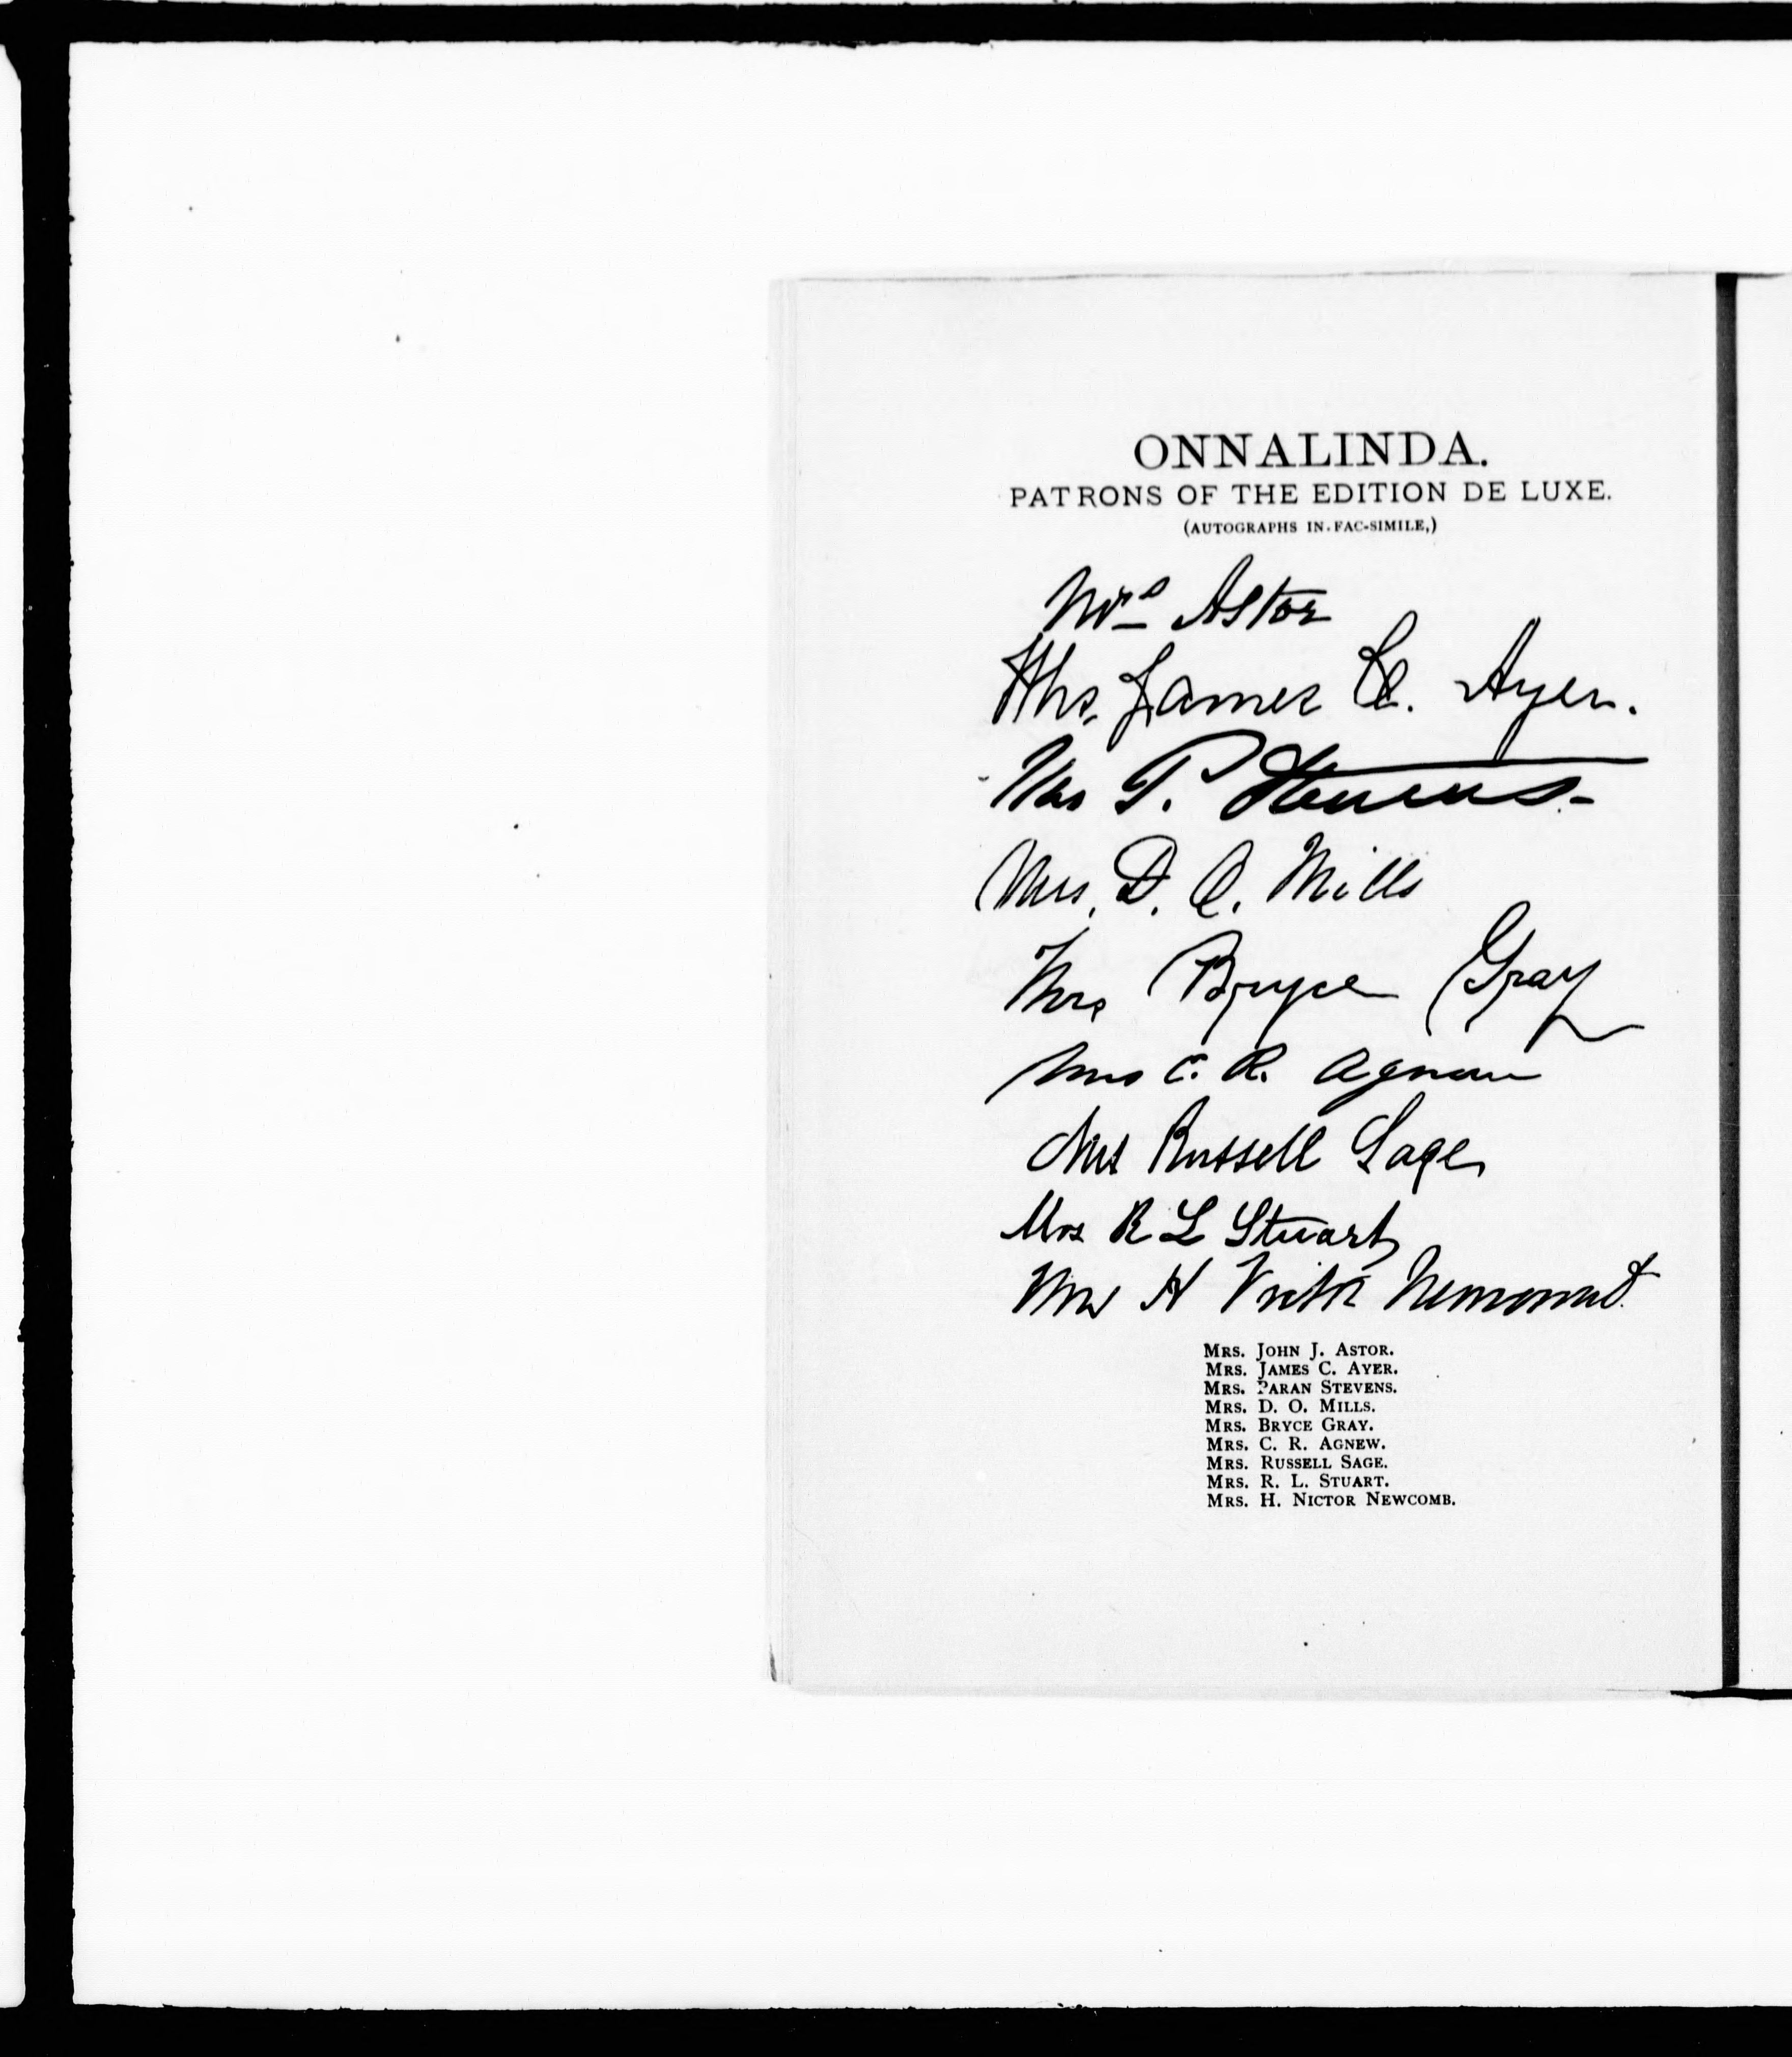 ONNALINDA.
PATRONS OF THE EDITION DE LUXE.
(AUTOGRAPHS IN FAC-SIMILE,)
Mrs Astor
Mrs. James C. Ayer.
Mrs P. Stevens.
Mrs. D. O. Mills
Mrs Bryce Gray
Mrs C. R. Agnew
Mrs Russell Sage
Mrs R L Stuart
Mrs H Victor Newcomb
MRS. JOHN J. ASTOR.
MRS. JAMES C. AYER.
MRS. PARAN STEVENS.
MRS. D. O. MILLS.
MRS. BRYCE GRAY.
MRS. C. R. AGNEW.
MRS. RUSSELL SAGE.
MRS. R. L. STUART.
MRS. H. NICTOR NEWCOMB.